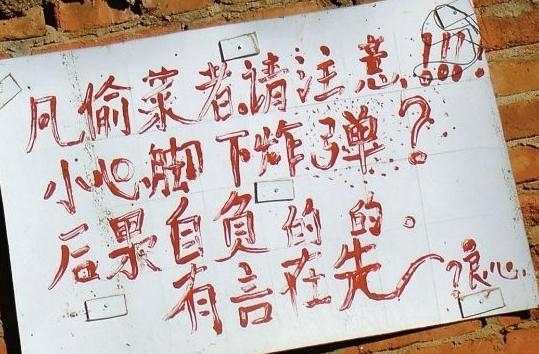 凡偷菜者.请注意.!!!
小心.脚下炸弹？
后果自负的的。
有言在先～狠心.